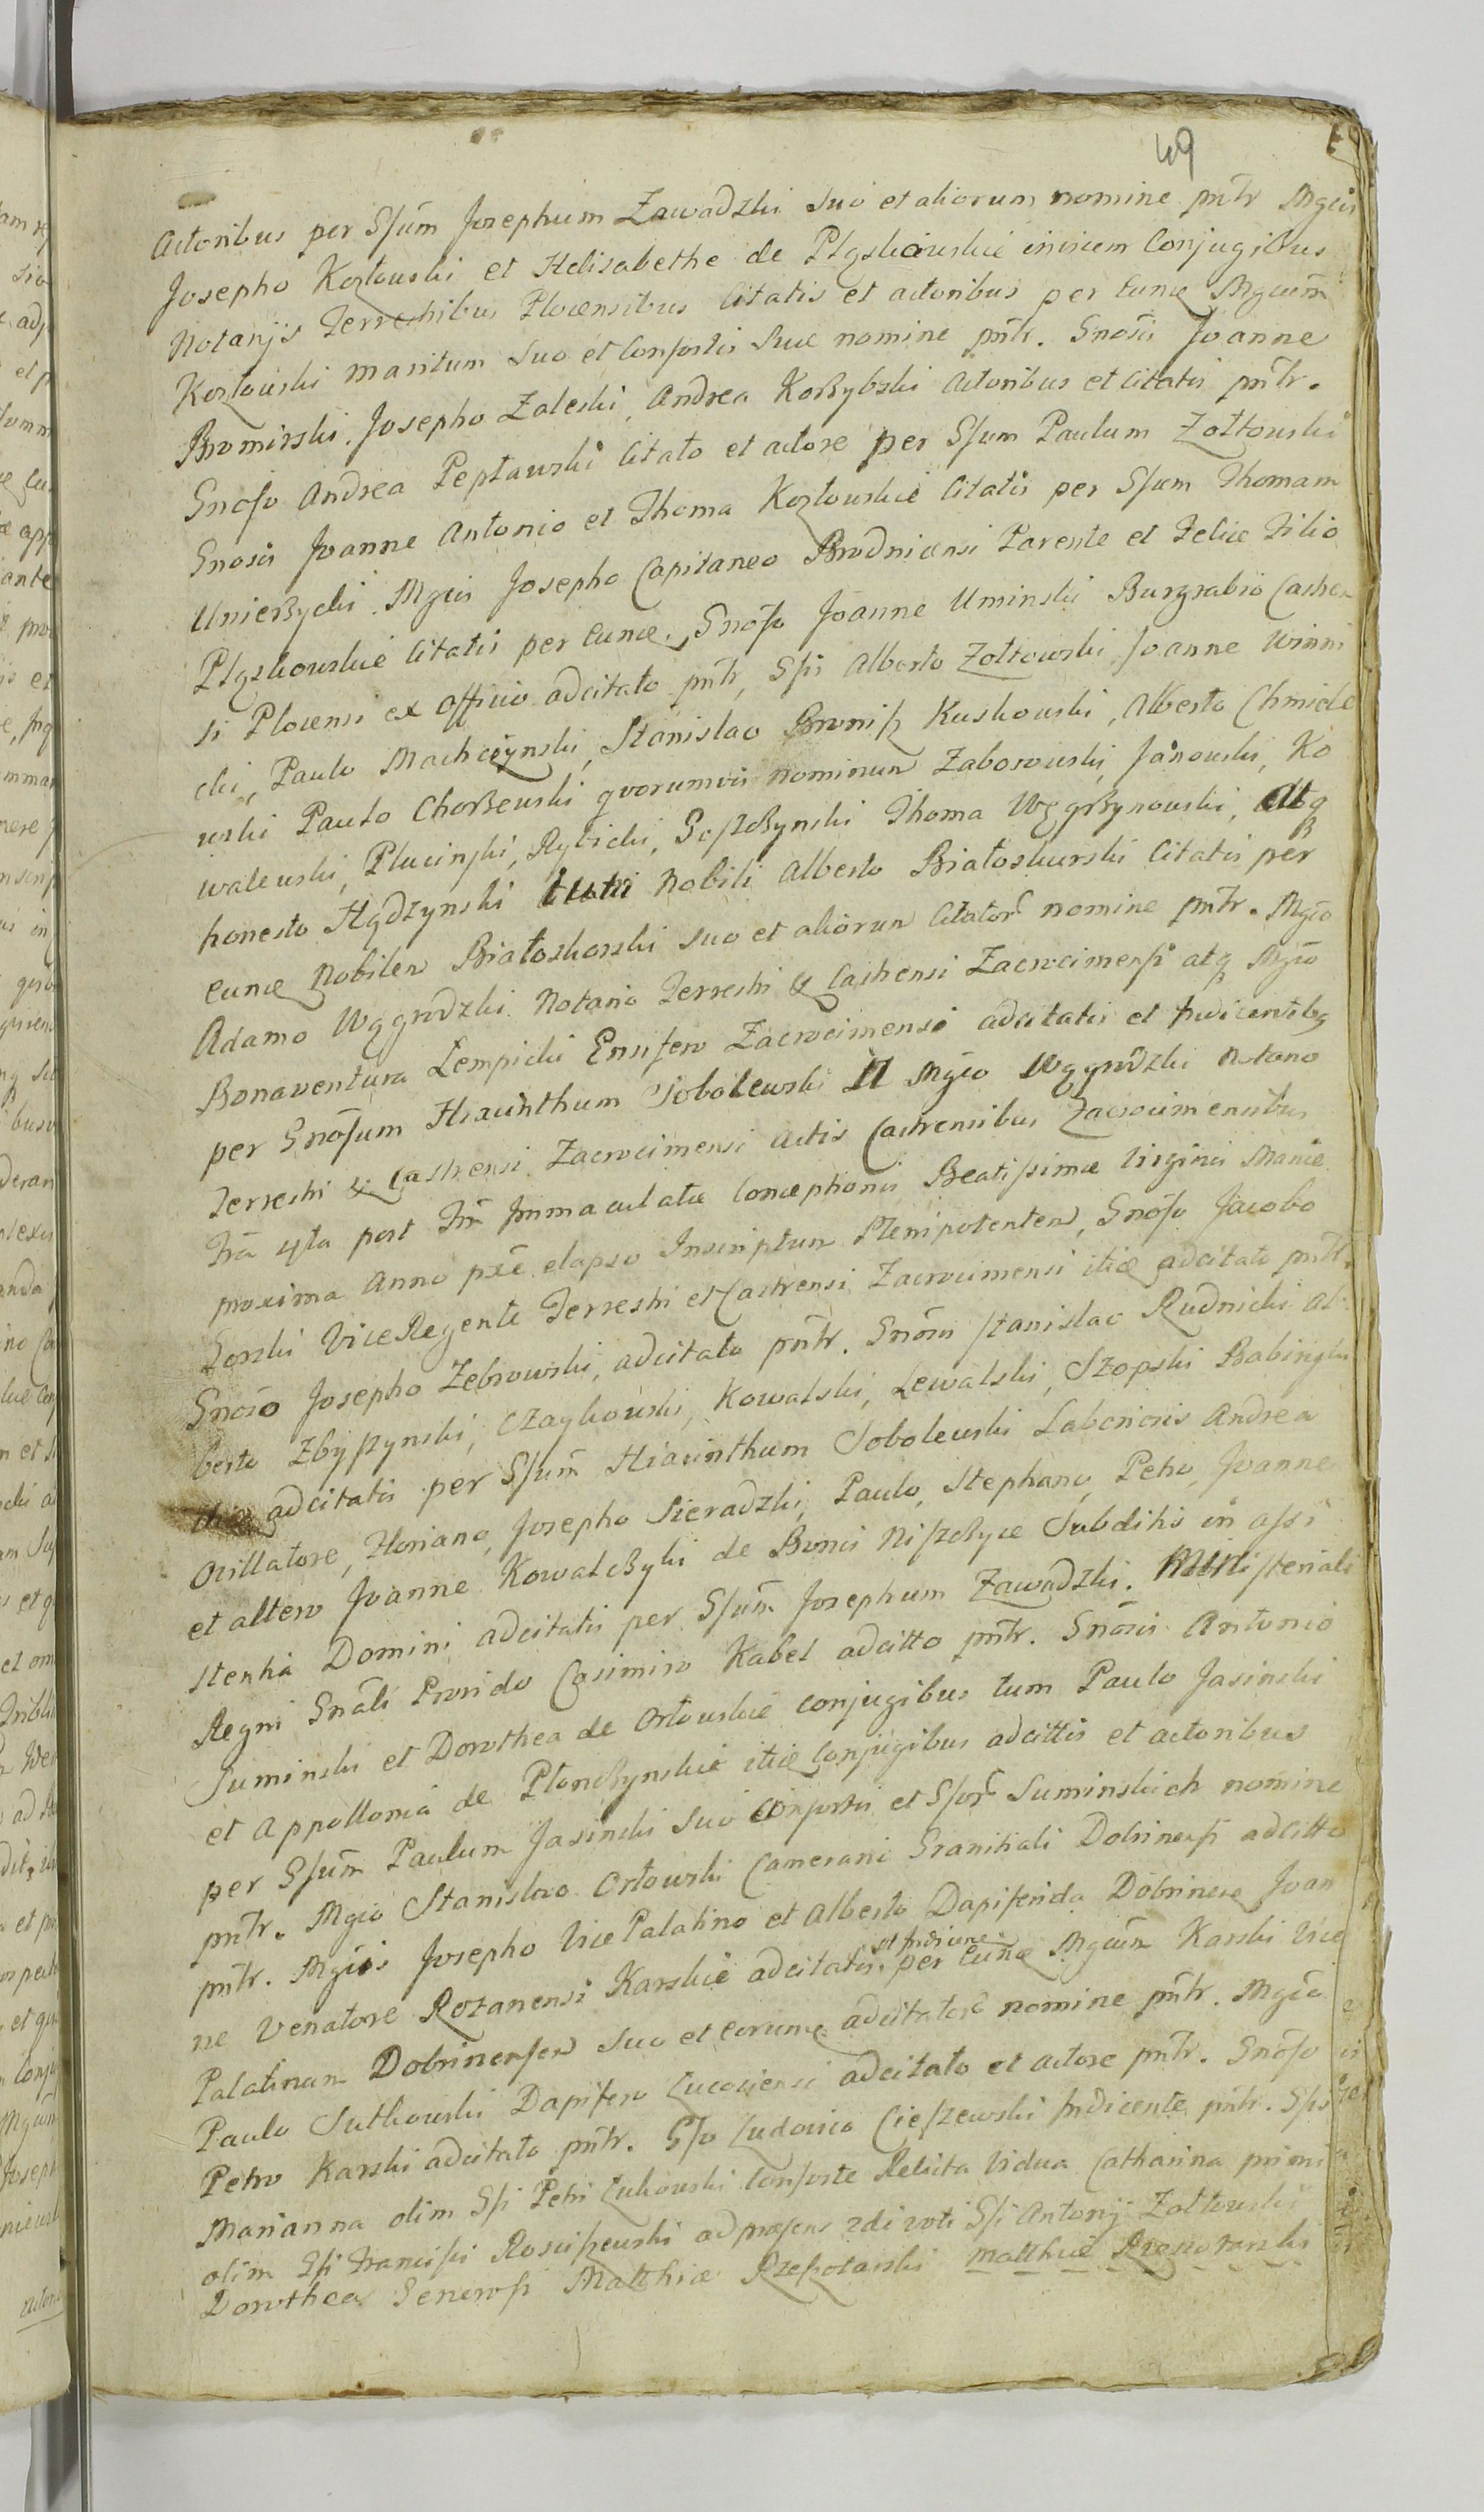 49
Actoribus per Gsum̄ Josephum Zawadzki suo et aliorum nomine pn̄tr Mgcis
Josepho Kozłowski et Helisabethe de Plęskowskie invicem Conjugibus
Notarijs Terrestribus Plocensibus Citatis et actoribus per eunde Mgcum̄
Kozłowski maritum suo et Consortis suae nomine pn̄tr. Gnosis Joanne
Bromirski, Josepho Zaleski, Andrea Korzybski actoribus et Citatis pn̄tr.
Gnoso Andrea Peptawski Citato et actore per Gsum Paulum Zołtowski
Gnosis Joanne Antonio et Thoma Kozłowskie Citatis per Gsum Thomam
Unierzycki. Mgcis Josepho Capitaneo Brodnicensi Parente et Felice Filio
Pląskowskie Citatis per eunde. Gnoso Joanne Uminski Burgrabio Castren
si Plocensi ex officio adcitato pn̄tr, Gsis Alberto Zołtowski, Joanne Winni
cki, Paulo Machczynski, Stanislao Bronisz Kuskowski, Alberto Chmiele
wski Paulo Chorzewski quorumvis nominum Zaborowski, Janowski, Ko
walewski, Plucinski, Rybicki, Goszczynski Thoma Węgrzynowski, atq
honesto Hądzynski Nobili Alberto Białoskurski Citatis per
eunde Nobilem Białoskorski suo et aliorum Citator̄ nomine pn̄tr. Mgco
Adamo Wągrodzki Notario Terrestri & Castrensi Zacrocimensi atq Mgco
Bonaventura Lempicki Ensifero Zacrocimensi adcitatis et Indicentibq
per Gnosum Hiacinthum Sobolewski II Mgco Wągrodzki Notario
Terrestri & Castrensi Zacrocimensi actis Castrensibus Zacrocimensibus
Fria 4ta post Fm̄ Immaculatae Conceptionis Beatissimae Virginis Mariae
proxima Anno pxe elapso Inscriptum Plenipotentem, Gnoso Jacobo
Gorski ViceRegente Terrestri et Castrensi Zacrocimensi itide adcitato pn̄tr.
Gnoso Josepho Zebrowski, adcitato pn̄tr. Gnosis Stanislao Rudnicki Al
berto Zbyszynski, Czaykowski, Kowalski, Lewalski, Szopski Babinski
itide adcitatis per Gsum̄ Hiacinthum Sobolewski Laboriosis Andrea
Ovillatore, Floriano, Josepho Sieradzki, Paulo, Stephano, Petro, Joanne
et altero Joanne Kowalczyki de Bonis Niszczyce Subditis in assi
stentia Domini adcitatis per Gsum̄ Josephum Zawadzki. Ministeriali
Regni Gnāli Provido Casimiro Kabel adcitto pn̄tr. Gnosis Antonio
Suminski et Dorothea de Orłowskie conjugibus tum Paulo Jasinski
et Appollonia de Płonczynskie itide Conjugibus adcittis et actoribus
per Gsum̄ Paulum Jasinski suo Consortis et Gsor̄ Suminskich nomine
pn̄tr. Mgco Stanislao Orłowski Camerario Granitiali Dobrinensi adcitto
pn̄tr. Mgcis Josepho Vice Palatino et Alberto Dapiferida Dobrinense Joan
ne Venatore Rozanensi Karskie adcitatis et Indicene. per eunde Mgcum̄ Karski Vice
Palatinum Dobrinensem suo et eorunde adcitator̄ nomine pn̄tr. Mgco
Paulo Sutkowski Dapifero Lucoviensi adcitato et actore pn̄tr. Gnoso
Petro Karski adcitato pn̄tr. Gso Ludovico Cieszewski Indicente pn̄tr. Gsis
Marianna olim Gsi Petri Łukowski Consorte Relicta Vidua Catharina primi
olim Gsi Francisci Rosciszewski ad praesens 2di voti Gsi Antonij Zołtowski
Dorothea Generosi Matthiae Rzeszotarski Matthiae Rzeszotarski